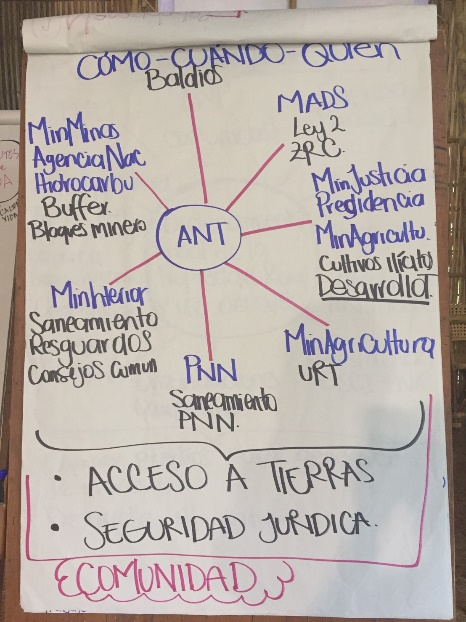 CÓMO-CUÁNDO-QUIÉN
Baldios
MADS
Ley 2
ZRC.
MinMinas
Agencia Nac
Hidrocarbu
Buffer.
Bloques minero
MinJusticia
Presidencia
MinAgricultu.
Cultivos Ilícitos
Desarrollo T.
ANT
MinInterior
Saneamiento
Resguardos
Consejos Comun
PNN
Saneamiento
PNN.
MinAgricultura
URT
• ACCESO A TIERRAS
• SEGURIDAD JURIDICA.
COMUNIDAD